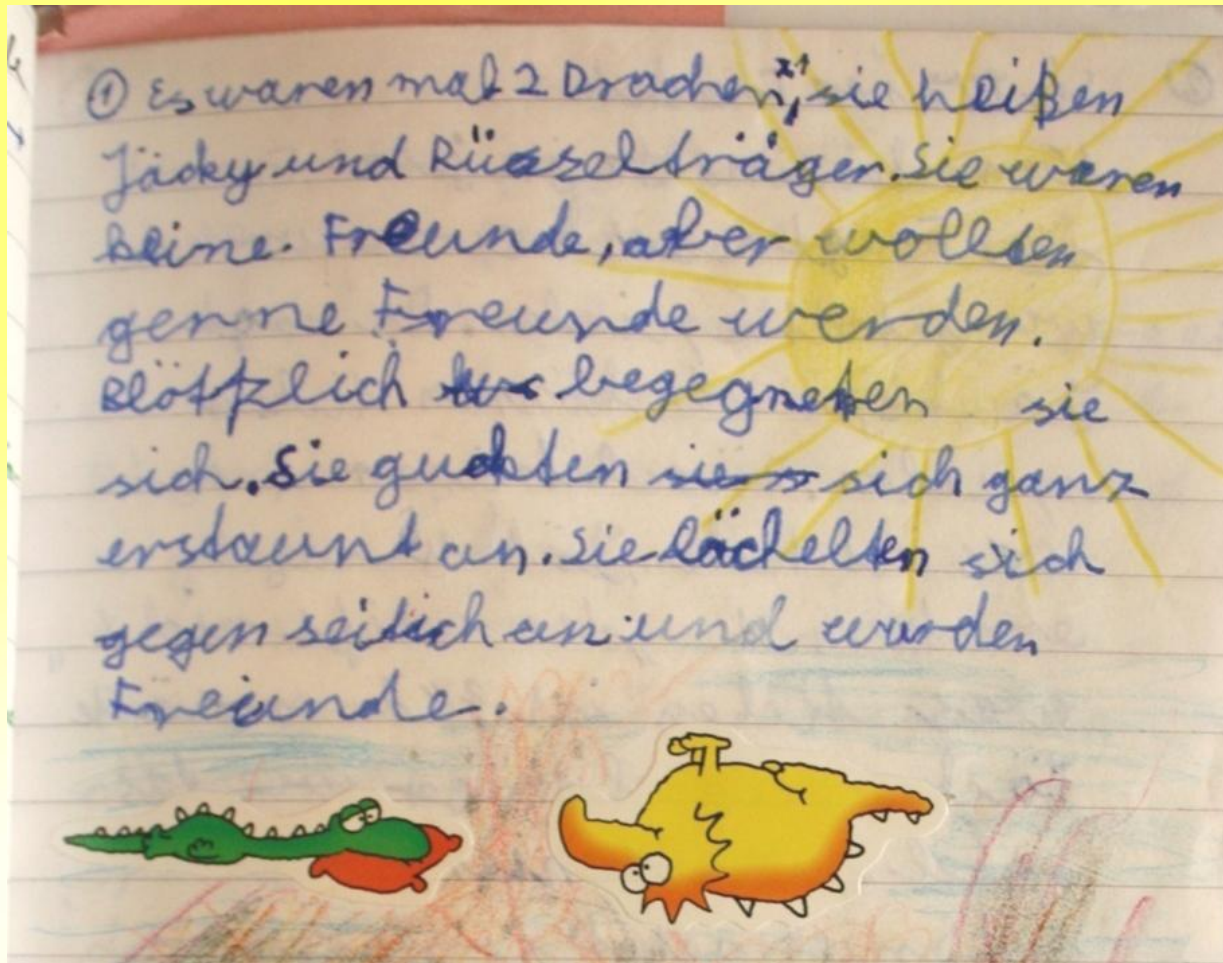 ① Es waren mal 2 Drachen, sie heißen
Jäcky und Rüsselträger. Sie waren
keine Freunde, aber wollten
gerne Freunde werden.
Blötzlich begegneten sie
sich. Sie guckten sich ganz
erstaunt an. Sie lächelten sich
gegen seitich an und wurden
Freunde.